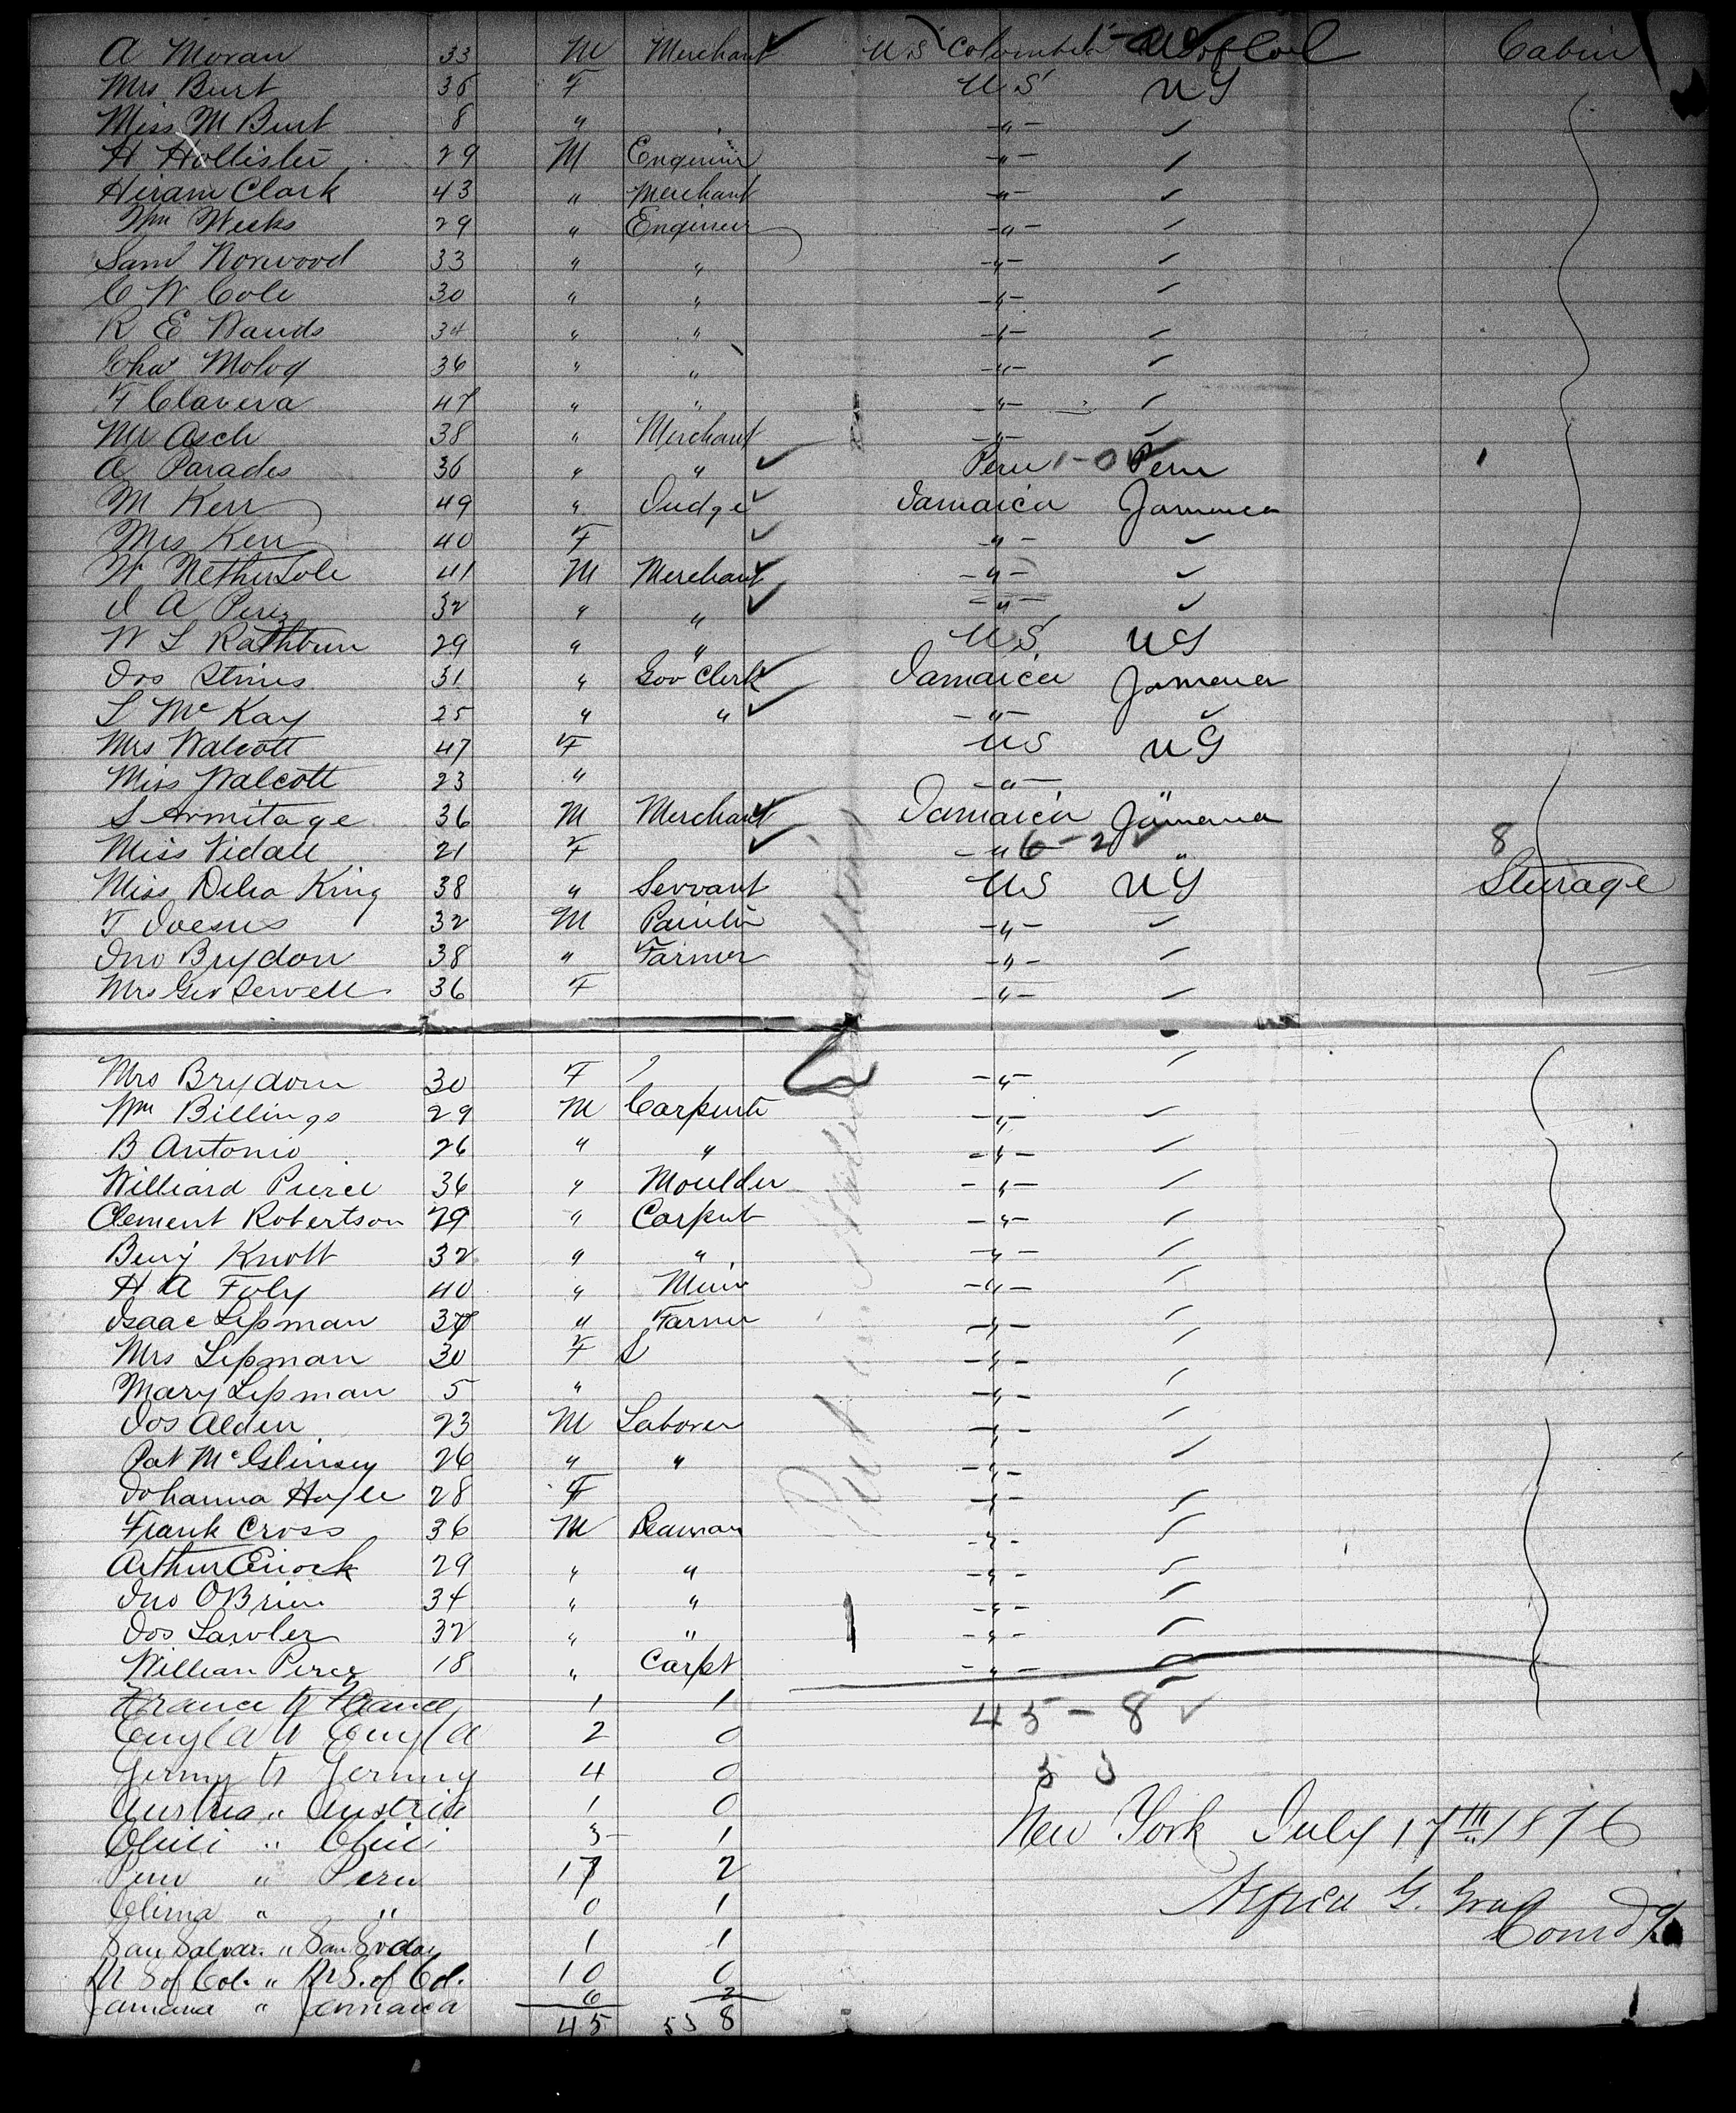 A Moran 33 M Merchant ✓ US Colombia US of Col Cabin
Mrs Burt 36 F US US
Miss M Burt 8 " - " -
H Hollister 29 M Engineer - " -
Hiram Clark 43 " Merchant - " -
Wm Weeks 29 " Engineer - " -
Saml Norwood 33 " " - " -
C W Cole 30 " " - " -
R E Wands 34 " " - " -
Chas Moloy 36 " " - " -
F Clavera 47 " " - " -
Mr Asch 38 " Merchant - " -
A Parades 36 " " ✓ Peru 1-0 Peru
M Kerr 49 " Judge ✓ Jamaica Jamaica
Mrs Kerr 40 F ✓ - " - ✓
W Nethersole 41 M Merchant ✓ - " - ✓
J A Perez 32 " " ✓ - " - ✓
W S Rathbun 29 " " US US
Jos Stines 31 " Gov Clerk ✓ Jamaica Jamaica
S McKay 25 " " ✓ - " - ✓
Mrs Walcott 47 F US US
Miss Walcott 23 " - " - "
S Armitage 36 M Merchant ✓ Jamaica Jamaica
Miss Vidall 21 F ✓ - " 6-2 ✓ " 8
Miss Delia King 38 " Servant US US Sturage
F 32 M Painter - " -
Jno Brydon 38 " Farmer - " -
Mrs Geo Sewell 36 F - " -
Mrs Brydon 30 F - " -
Wm Billings 29 M Carpente - " -
B Antonio 26 " " - " -
Williard Pierce 36 " Moulder - " -
Clement Robertson 29 " Carpent - " -
Benj Knott 32 " " - " -
H A Foly 40 " Miner - " -
Isaac Lipman 37 " Farmer - " -
Mrs Lipman 30 F S - " -
Mary Lipman 5 " - " -
Jos Alden 23 M Laborer - " -
Pat McGlinsey 26 " " - " -
Johanna Hayle 28 F - " -
Frank Cross 36 M Seaman - " -
Arthur Enock 29 " " - " -
Jno OBrien 34 " " - " -
Jos Lawler 32 " " - " -
William Perez 18 " Carpt - " -
France to France 1 1 45 - 8 ✓
Engla to Engla 2 0
Germy to Germny 4 0 53
Austria " Austria 1 0 New York July 17th 1876
Chili " Chili 3 1
Peru " Peru 17 2 G.
China " " 0 1 Comdg
San Salvar. " San Svdor 1 1
U S of Col. " U S. of Col. 10 0
Jamaica " Jamaica 6 2
45 53 8